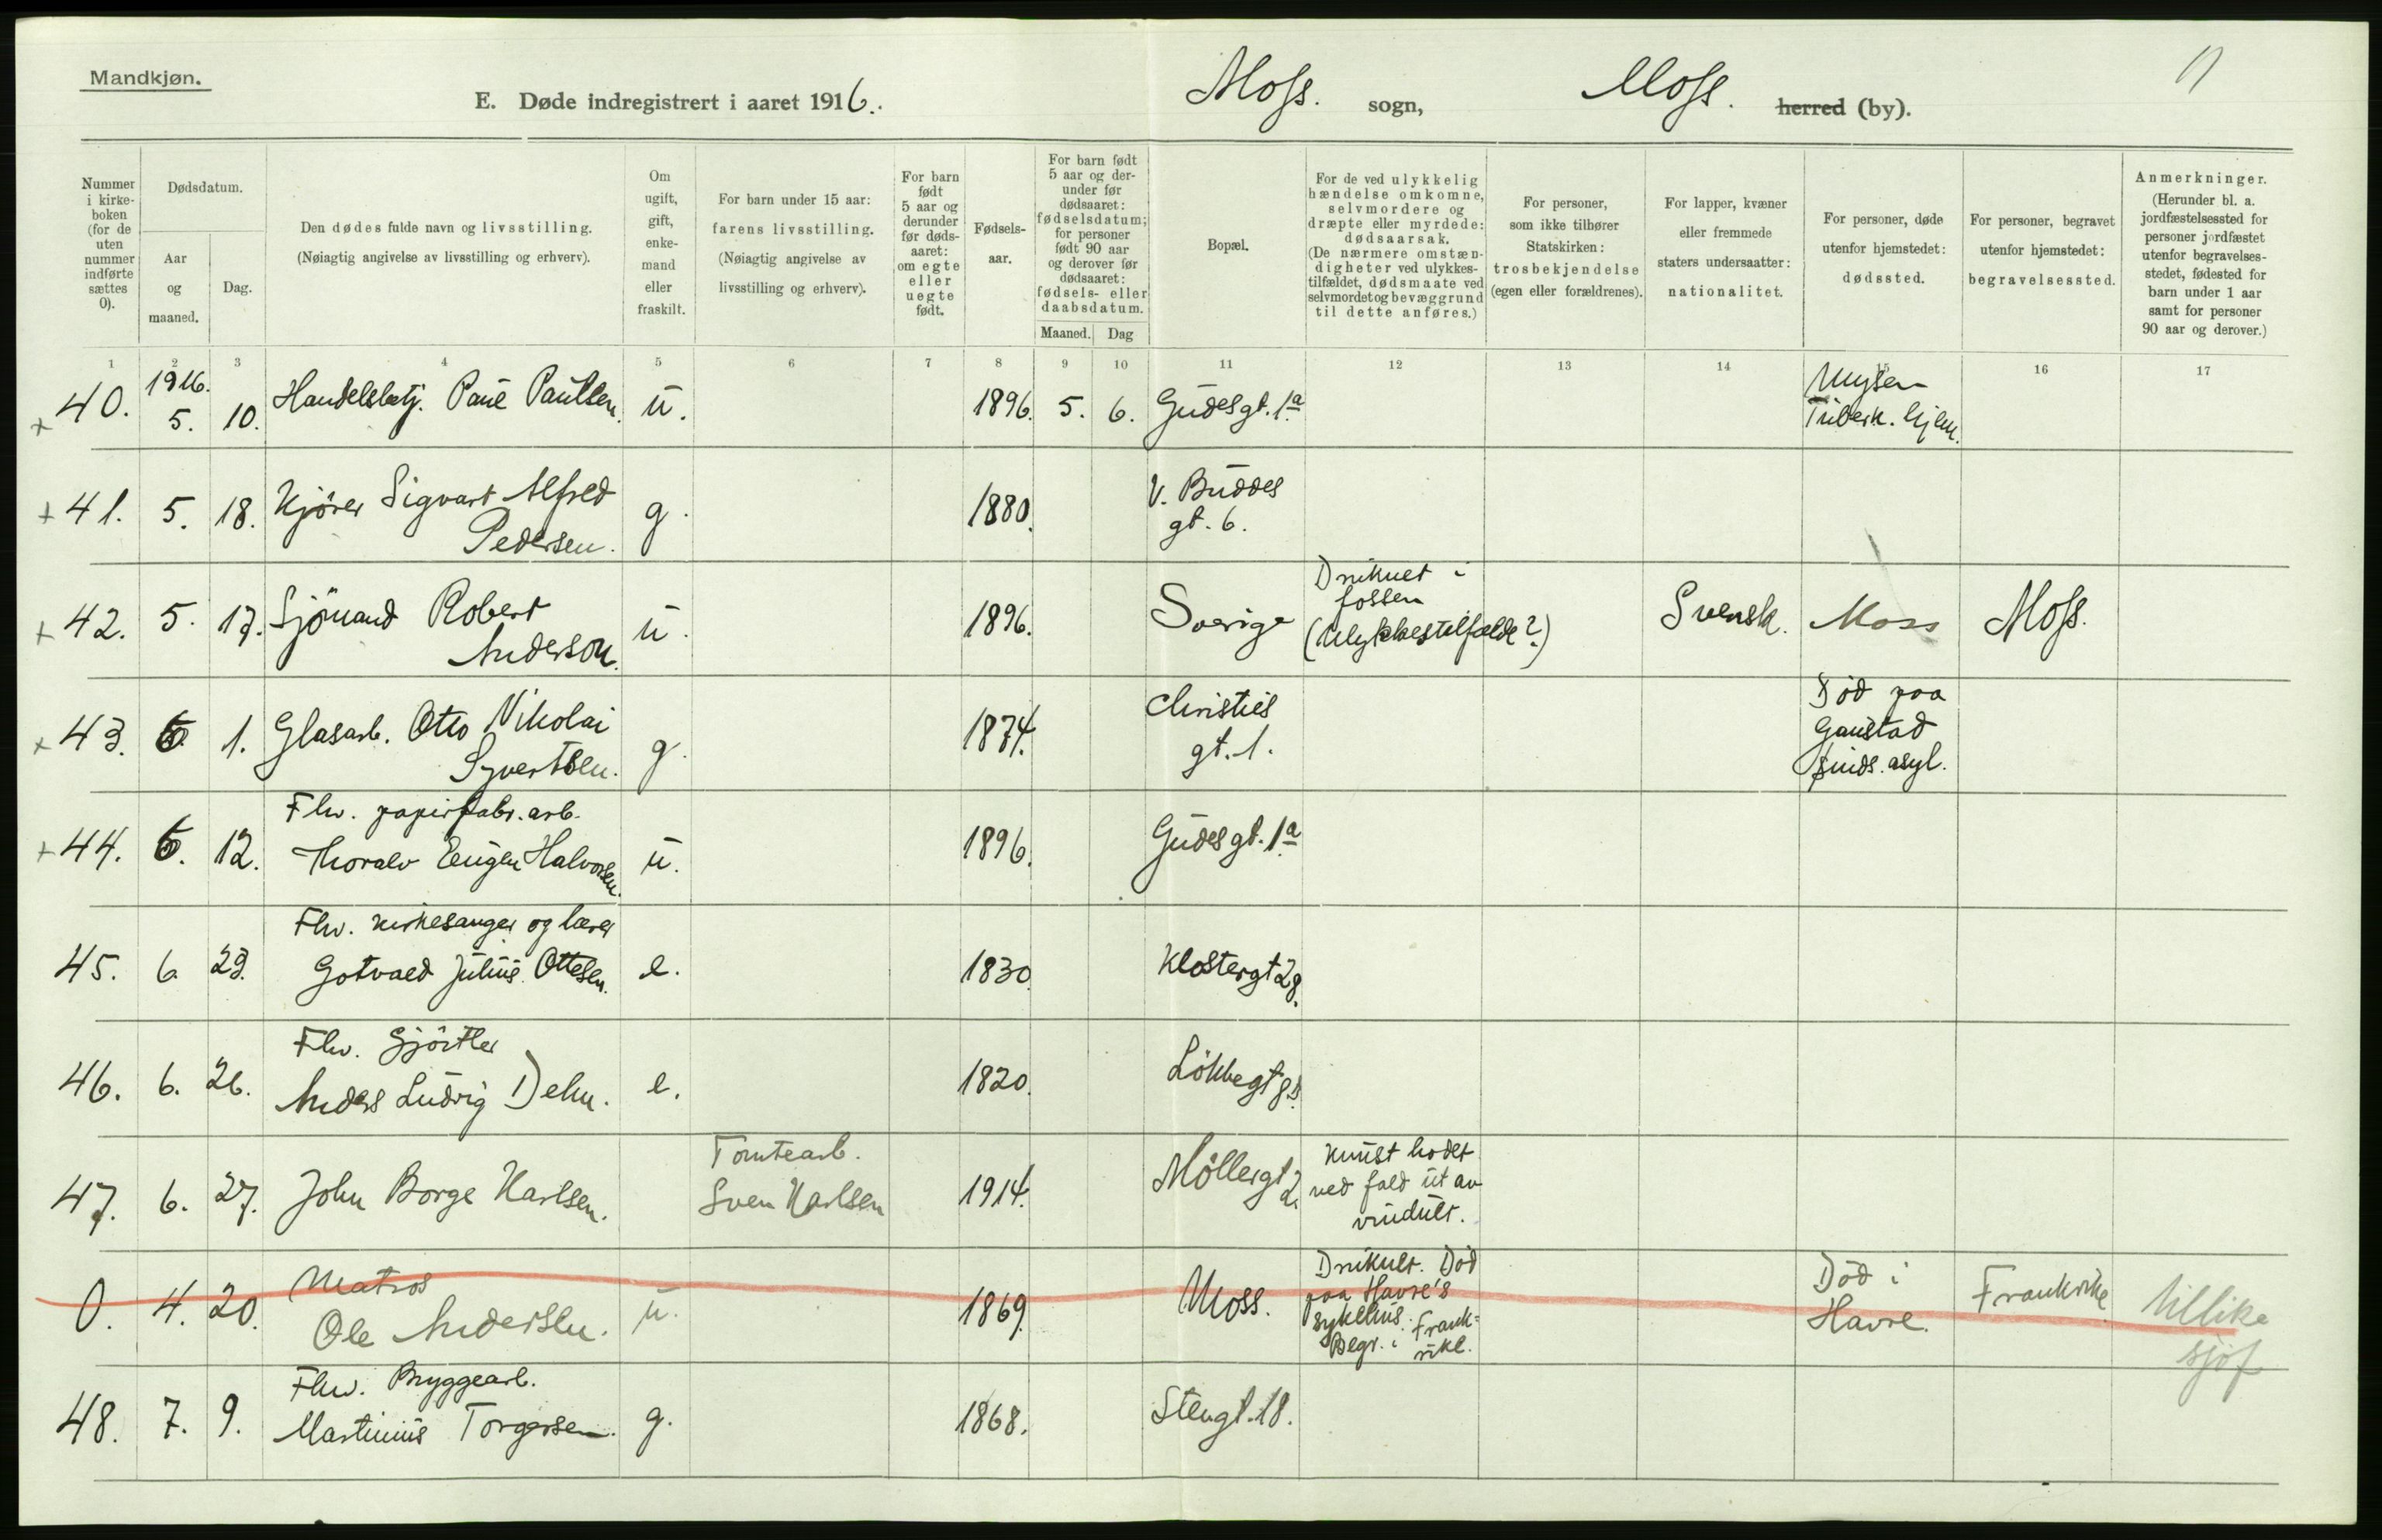 Mandkjøn.
E. Døde indregistrert i aaret 1916.
Moss. sogn, Moss. herred (by).
Nummer i kirkeboken (for de uten nummer indførte sættes 0).
Dødsdatum.
Aar og maaned.
Dag.
Den dødes fulde navn og livsstilling.
(Nøiagtig angivelse av livsstilling og erhverv).
Om ugift, gift, enkemand eller fraskilt.
For barn under 15 aar: farens livsstilling.
(Nøiagtig angivelse av livsstilling og erhverv).
For barn født 5 aar og derunder før dødsaaret: om egte eller uegte født.
Fødselsaar.
For barn født 5 aar og derunder før dødsaaret: fødselsdatum; for personer født 90 aar og derover før dødsaaret: fødsels- eller daabsdatum.
Maaned. Dag
Bopæl.
For de ved ulykkelig hændelse omkomne, selvmordere og dræpte eller myrdede: dødsaarsak.
(De nærmere omstændigheter ved ulykkestilfældet, dødsmaate ved selvmordet og bevæggrund til dette anføres.)
For personer, som ikke tilhører Statskirken: trosbekjendelse (egen eller forældrenes).
For lapper, kvæner eller fremmede staters undersaatter: nationalitet.
For personer, døde utenfor hjemstedet: dødssted.
For personer, begravet utenfor hjemstedet: begravelsessted.
Anmerkninger.
(Herunder bl. a. jordfæstelsessted for personer jordfæstet utenfor begravelsesstedet, fødested for barn under 1 aar samt for personer 90 aar og derover.)
1 2 3 4 5 6 7 8 9 10 11 12 13 14 15 16 17
+ 40. 1916. 5. 10. Handelsbetj. Paul Paulsen. u. 1896. 5. 6. Gudesgt. 1a Mysen Tuberk. hjem.
+ 41. 5. 18. Kjører Sigvart Alfred Pedersen. g. 1880. V. Buddes gt. 6.
+ 42. 5. 17. Sjömand Robert Anderson. u. 1896. Sverige Druknet i fossen (Ulykkestilfælde?) Svensk. Moss Moss.
+ 43. 6. 1. Glasarb. Otto Nikolai Syvertsen. g. 1874. Christies gt. 1. Död paa Gaustad sinds. asyl.
+ 44. 6. 12. Fhv. papirfabr. arb. Thoralv Eugen Halvorsen. u. 1896. Gudesgt. 1a
45. 6 23. Fhv. kirkesanger og lærer Gotvald Julius Ottesen. e. 1830. Klostergt 28.
46. 6. 26. Fhv. Gjörtler Anders Ludvig Dehn. e. 1820. Lökkegt 8b.
47. 6. 27. John Borge Karlsen. Tomtearb. Sven Karlsen 1914. Möllergt 2. knust hodet ved fald ut av vinduet.
0. 4. 20. Matros Ole Andersen. u. 1869. Moss. Druknet. Död paa Havre's sykehus. Begr. i Frankrike. Död i Havre. Frankrike tillike sjöf
48. 7. 9. Fhv. Bryggearb. Martinius Torgersen. g. 1868. Stengt. 18.